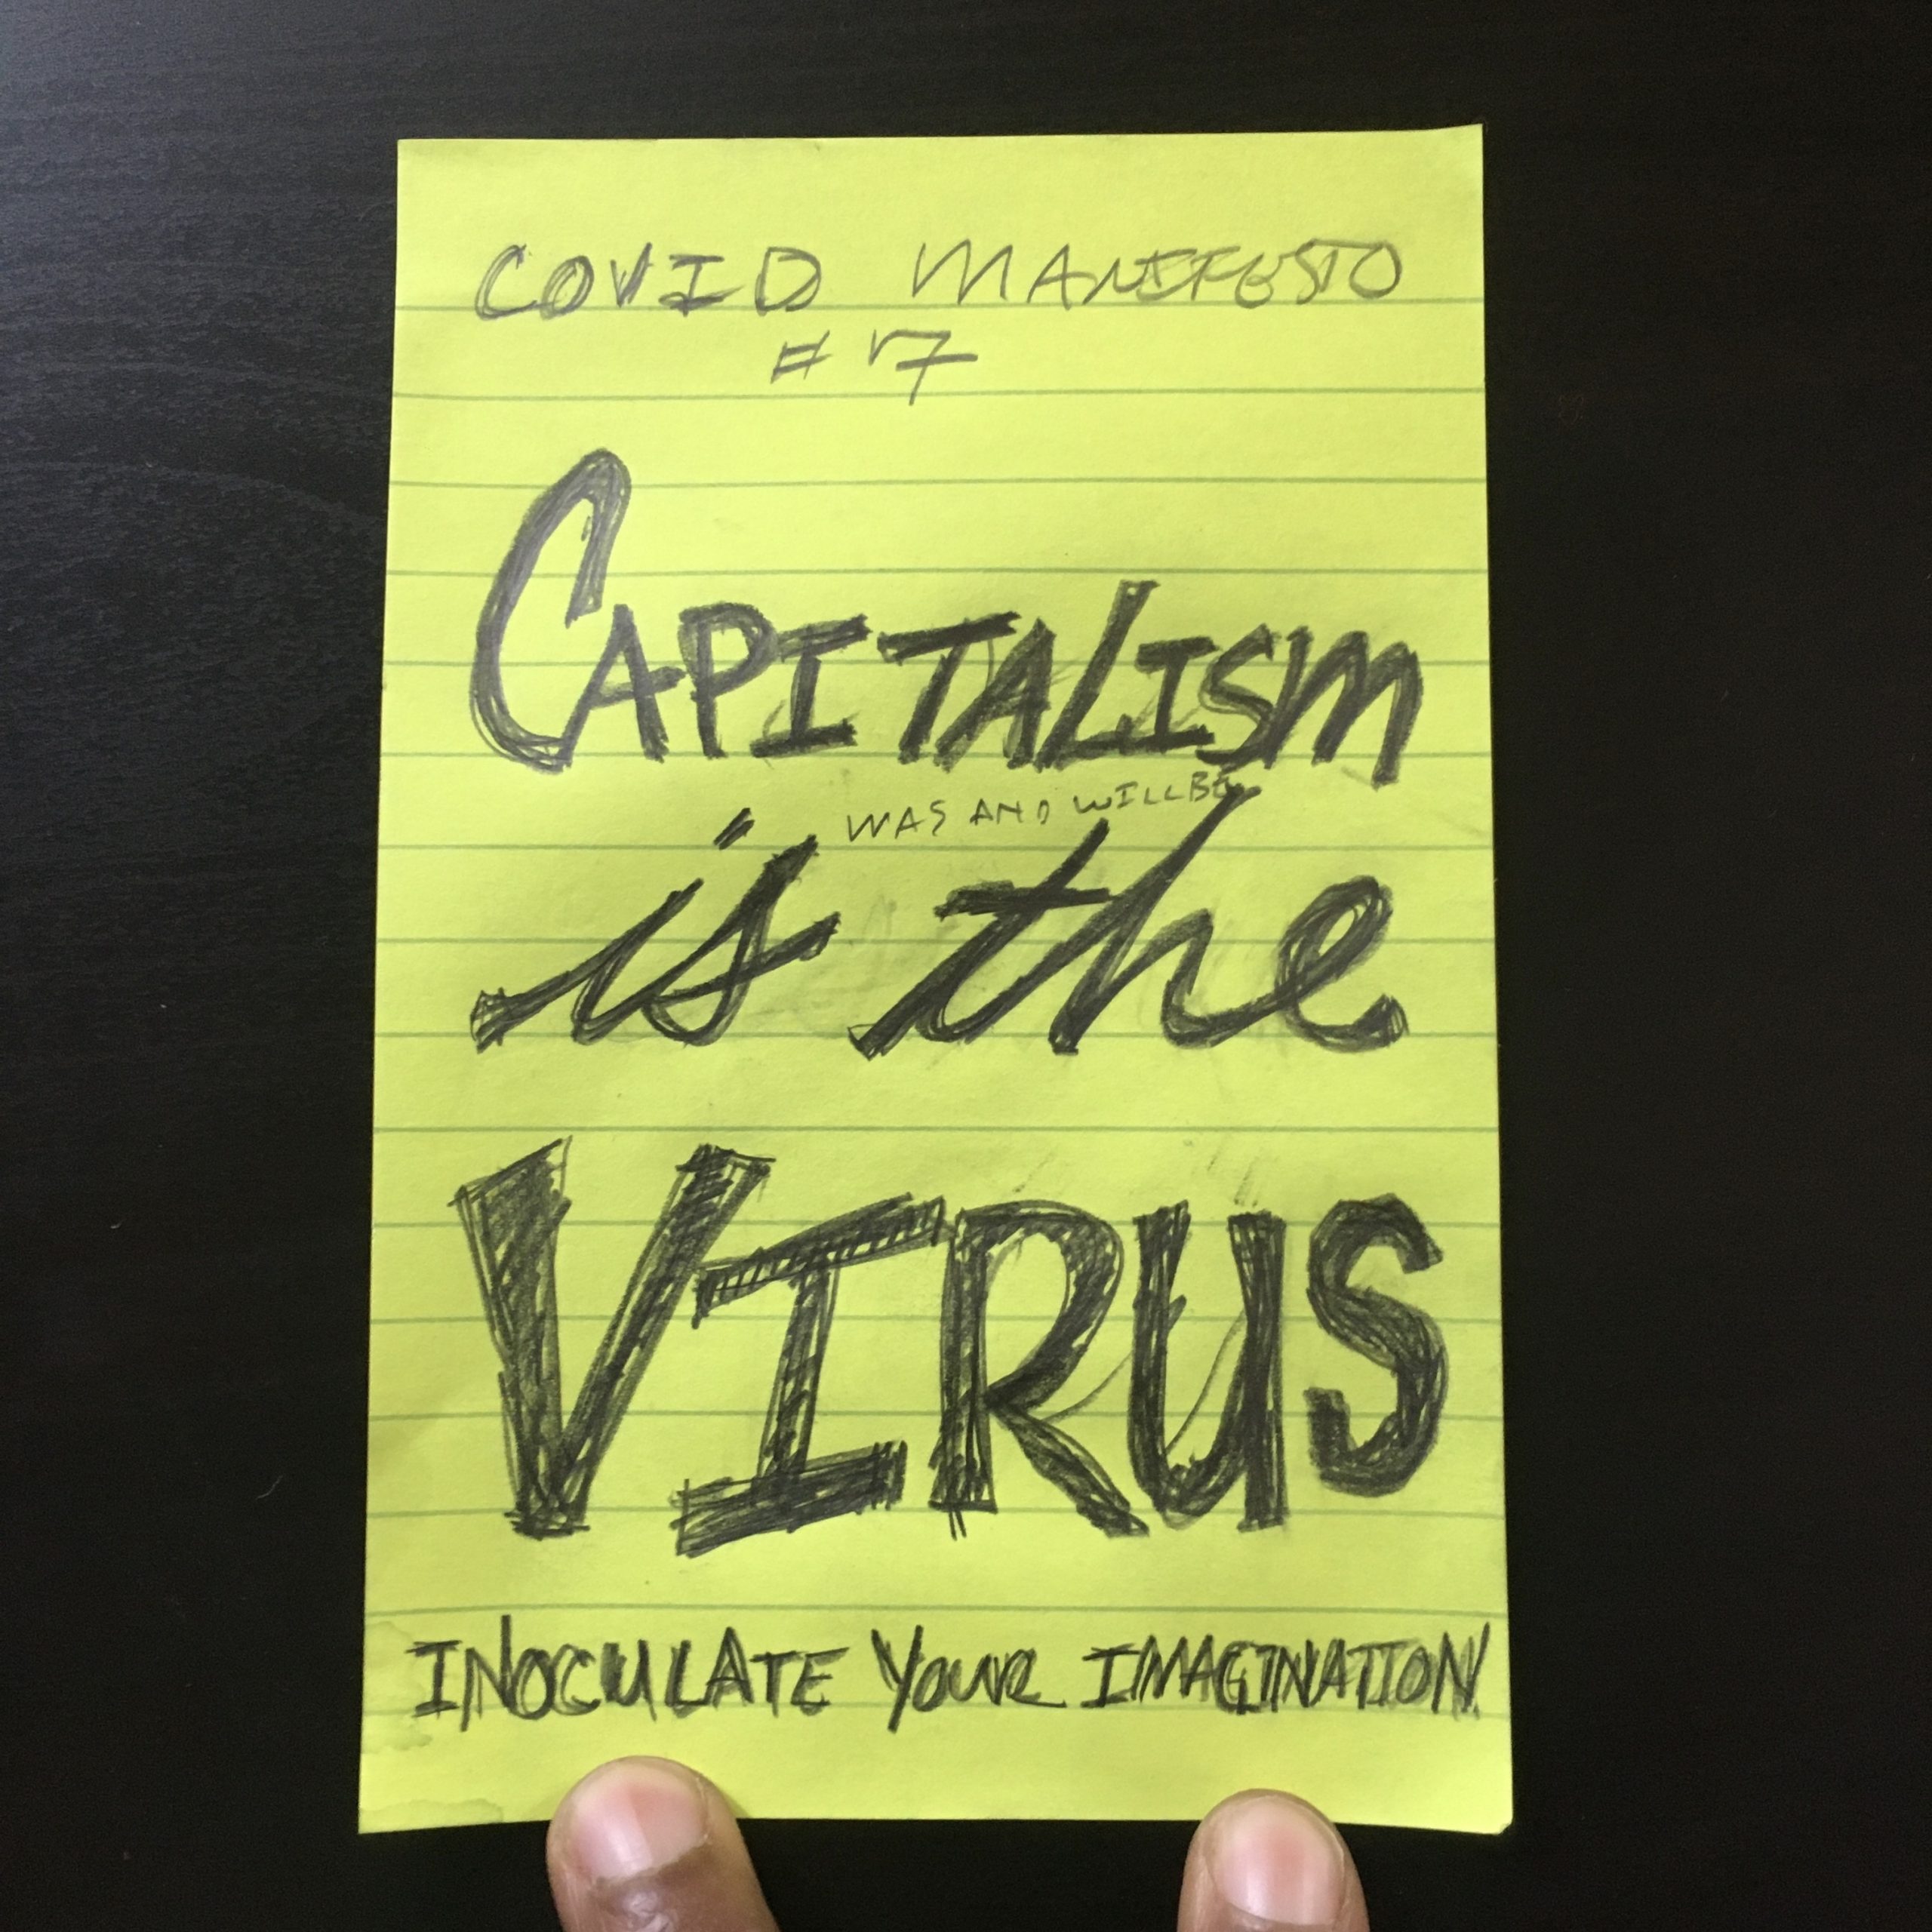 COVID MANIFESTO
# 7
CAPITALISM
WAS AND WILL BE
is the
VIRUS
INOCULATE YOUR IMAGINATION